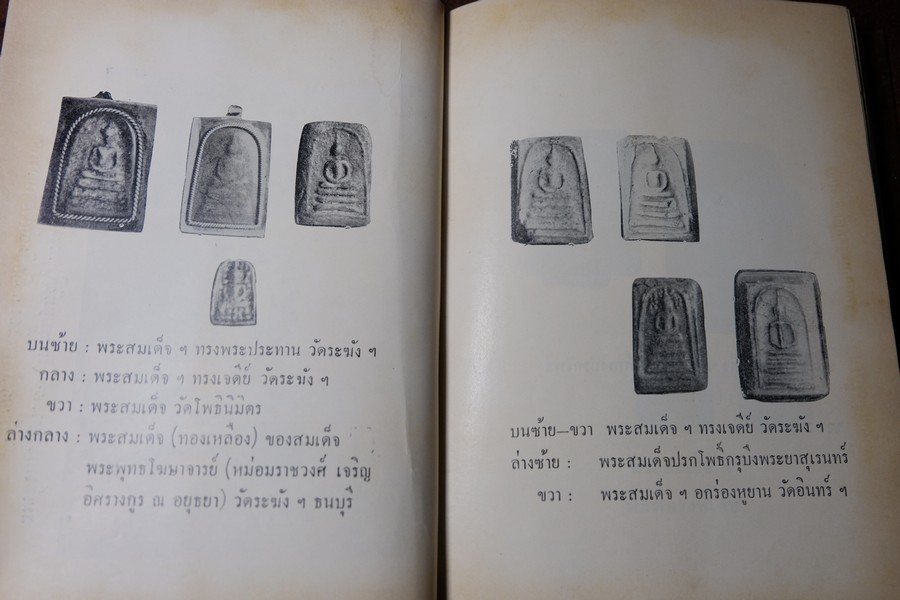 บนซ้าย : พระสมเด็จ ฯ ทรงพระประทาน วัดระฆัง ฯ
กลาง : พระสมเด็จ ฯ ทรงเจดีย์ วัดระฆัง ฯ
ขวา : พระสมเด็จ วัดโพธินิมิตร
ล่างกลาง : พระสมเด็จ (ทองเหลือง) ของสมเด็จ
พระพุทธโฆษาจารย์ (หม่อมราชวงศ์ เจริญ
อิศรางกูร ณ อยุธยา) วัดระฆัง ฯ ธนบุรี
บนซ้าย—ขวา พระสมเด็จ ฯ ทรงเจดีย์ วัดระฆัง ฯ
ล่างซ้าย : พระสมเด็จปรกโพธิ์กรุบึงพระยาสุเรนทร์
ขวา : พระสมเด็จ ฯ อกร่องหูยาน วัดอินทร์ ฯ